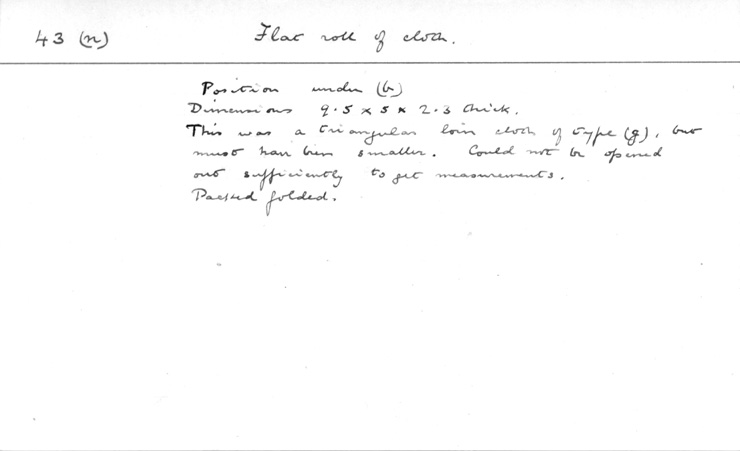 43 (n) Flat roll of cloth.
Position under (b)
Dimensions 9.5 x 5 x 2.3 thick.
This was a triangular loin cloth of type (g), but
must have been smaller. Could not be opened
out sufficiently to get measurements.
Packed folded.